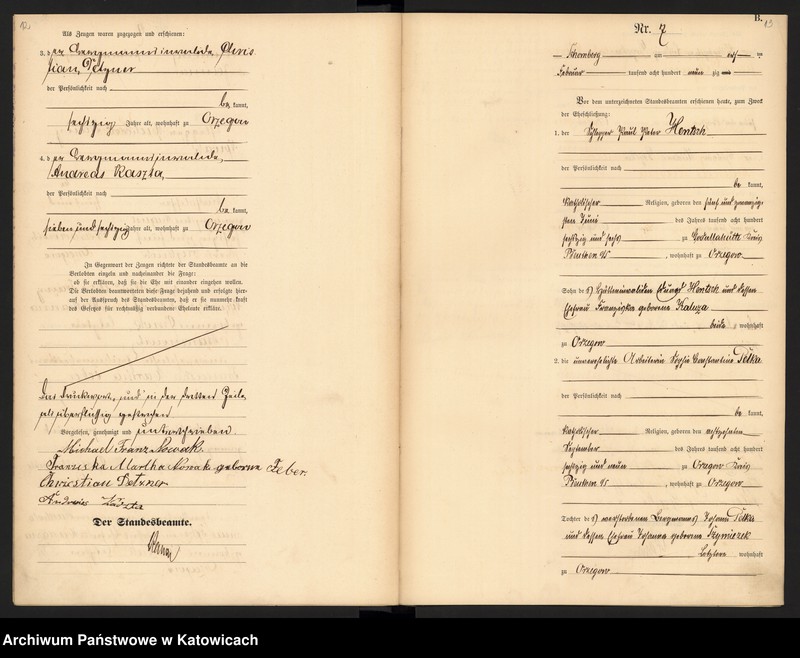 12.
Als Zeugen waren zugezogen und erschienen:
3. der Bergmannsinvalide Chris
tian Petzner
der Persönlichkeit nach
be kannt,
sechszig Jahre alt, wohnhaft zu Orzegow
4. der Bergmannsinvalide,
Andreas Kaszta,
der Persönlichkeit nach
be kannt,
sieben und sechszig Jahre alt, wohnhaft zu Orzegow
In Gegenwart der Zeugen richtete der Standesbeamte an die
Verlobten einzeln und nacheinander die Frage:
ob sie erklären, daß sie die Ehe mit einander eingehen wollen.
Die Verlobten beantworteten diese Frage bejahend und erfolgte hier-
auf der Ausspruch des Standesbeamten, daß er sie nunmehr kraft
des Gesetzes für rechtmäßig verbundene Eheleute erkläre.
und in der dritten Zeile
als überflüssig gestrichen
Vorgelesen, genehmigt und unterschrieben
Michael Franz Nowak
Franziska Martha Nowak geborene Feber.
Christian Petzner
Andreas Kaszta
Der Standesbeamte.
B.
13
Nr. 7
am
Februar tausend acht hundert neun zig
Vor dem unterzeichneten Standesbeamten erschienen heute, zum Zweck
der Eheschließung:
1. der Schlepper Paul Peter Hentsch
der Persönlichkeit nach
be kannt,
katholischer Religion, geboren den fünf und zwanzig-
sten Juni des Jahres tausend acht hundert
sechszig und sechs zu Godullahütte Kreis
Beuthen O/S, wohnhaft zu Orzegow
Sohn des Hütteninvaliden August Hentsch und dessen
Ehefrau Franziska geborene Kaluza
beide wohnhaft
zu Orzegow
2. die unverehelichte Arbeiterin Sophie Constantine Pelka
der Persönlichkeit nach
be kannt,
katholischer Religion, geboren den achtzehnten
September des Jahres tausend acht hundert
sechszig und neun zu Orzegow Kreis
Beuthen O/S, wohnhaft zu Orzegow
Tochter des verstorbenen Bergmanns Johann Pelka
und dessen Ehefrau Johanna geborene Szymiczek
Letztere wohnhaft
zu Orzegow
Archiwum Państwowe w Katowicach